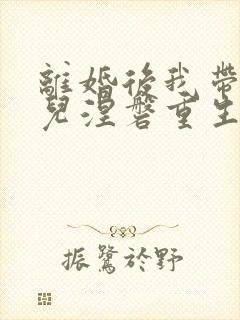 離婚後我帶
兒涅磐重生
振鷺於野